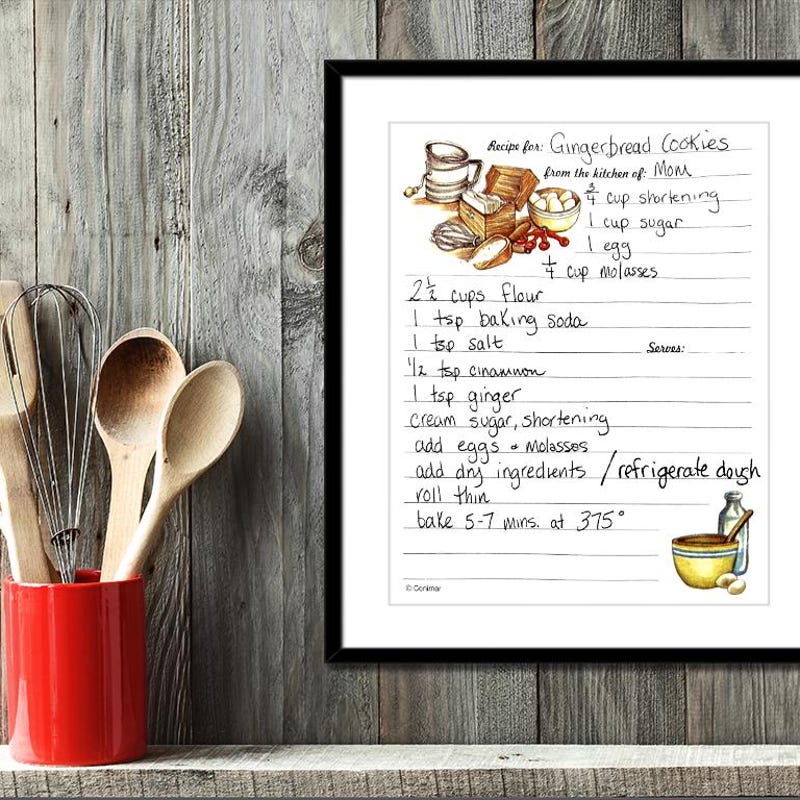 Recipe for: Gingerbread Cookies
from the kitchen of: Mom
3/4 cup shortening
1 cup sugar
1 egg
1/4 cup molasses
2 1/2 cups flour
1 tsp baking soda
1 tsp salt
Serves:
1/2 tsp cinammon
1 tsp ginger
cream sugar, shortening
add eggs & molasses
add dry ingredients / refrigerate dough
roll thin
bake 5-7 mins. at 375°
© Conimar